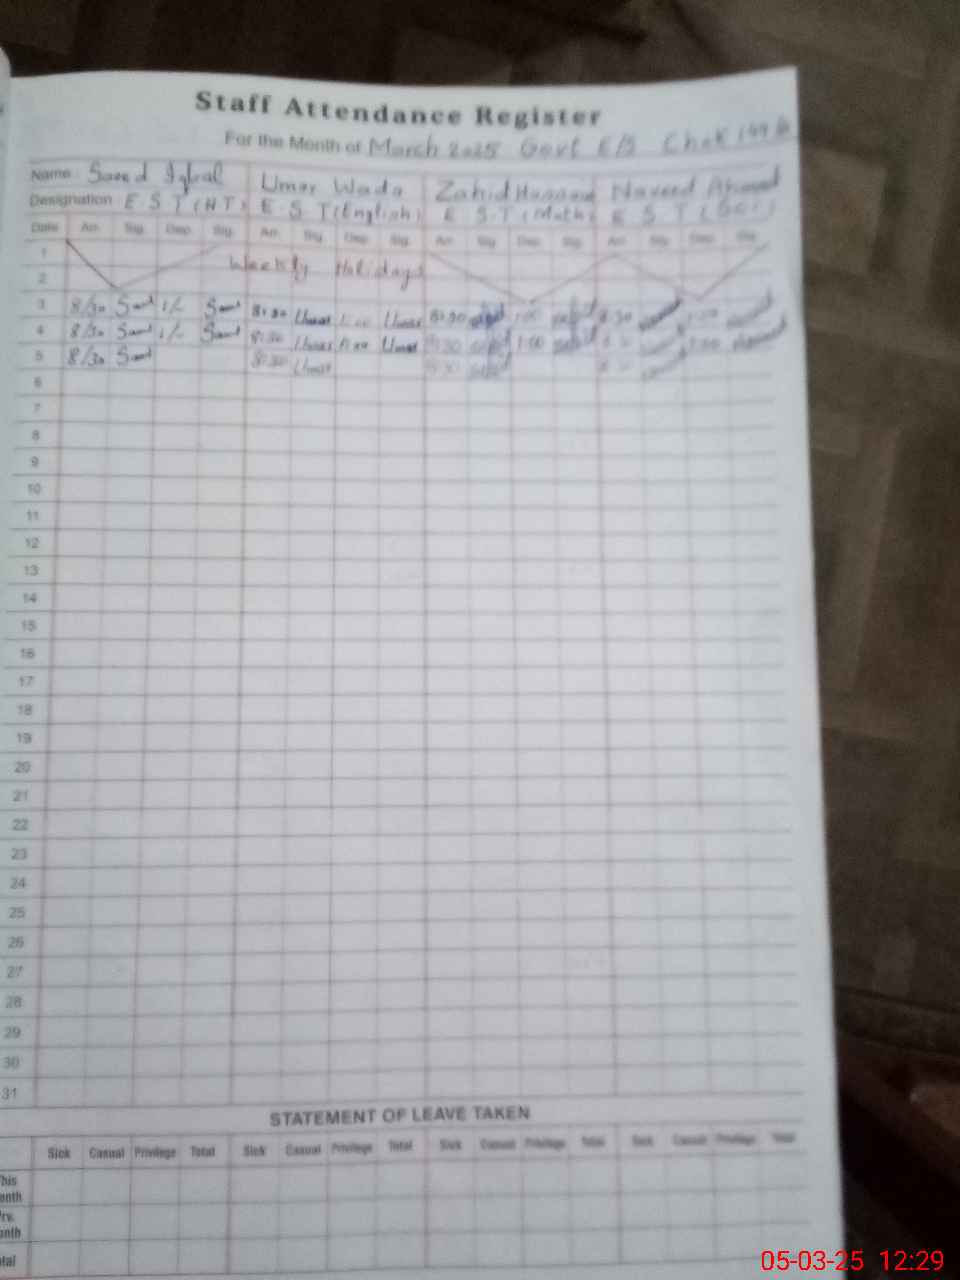 Staff Attendance Register
For the Month of March 2025 Govt E/S Chak 149
Name Saeed Iqbal Umar Wada Zahid Hussain Naveed Ahmad
Designation E S T (HT) E S T (English) E S T (Math) E S T (Sci)
Date Arr. Sig. Dep. Sig. Arr. Sig. Dep. Sig. Arr. Sig. Dep. Sig. Arr. Sig. Dep. Sig.
1
Weekly Holidays
2
3 8/30 Saeed 1/- Saeed 8:30 Umar 1:00 Umar 8:30 1:00 8:30 1:00
4 8/30 Saeed 1/- Saeed 8:30 Umar 1:00 Umar 8:30 1:00 1:00
5 8/30 Saeed 8:30 Umar 8:30
6
7
8
9
10
11
12
13
14
15
16
17
18
19
20
21
22
23
24
25
26
27
28
29
30
31
STATEMENT OF LEAVE TAKEN
Sick Casual Privilege Total Sick Casual Privilege Total Sick Casual Privilege Total Sick Casual Privilege Total
05-03-25 12:29